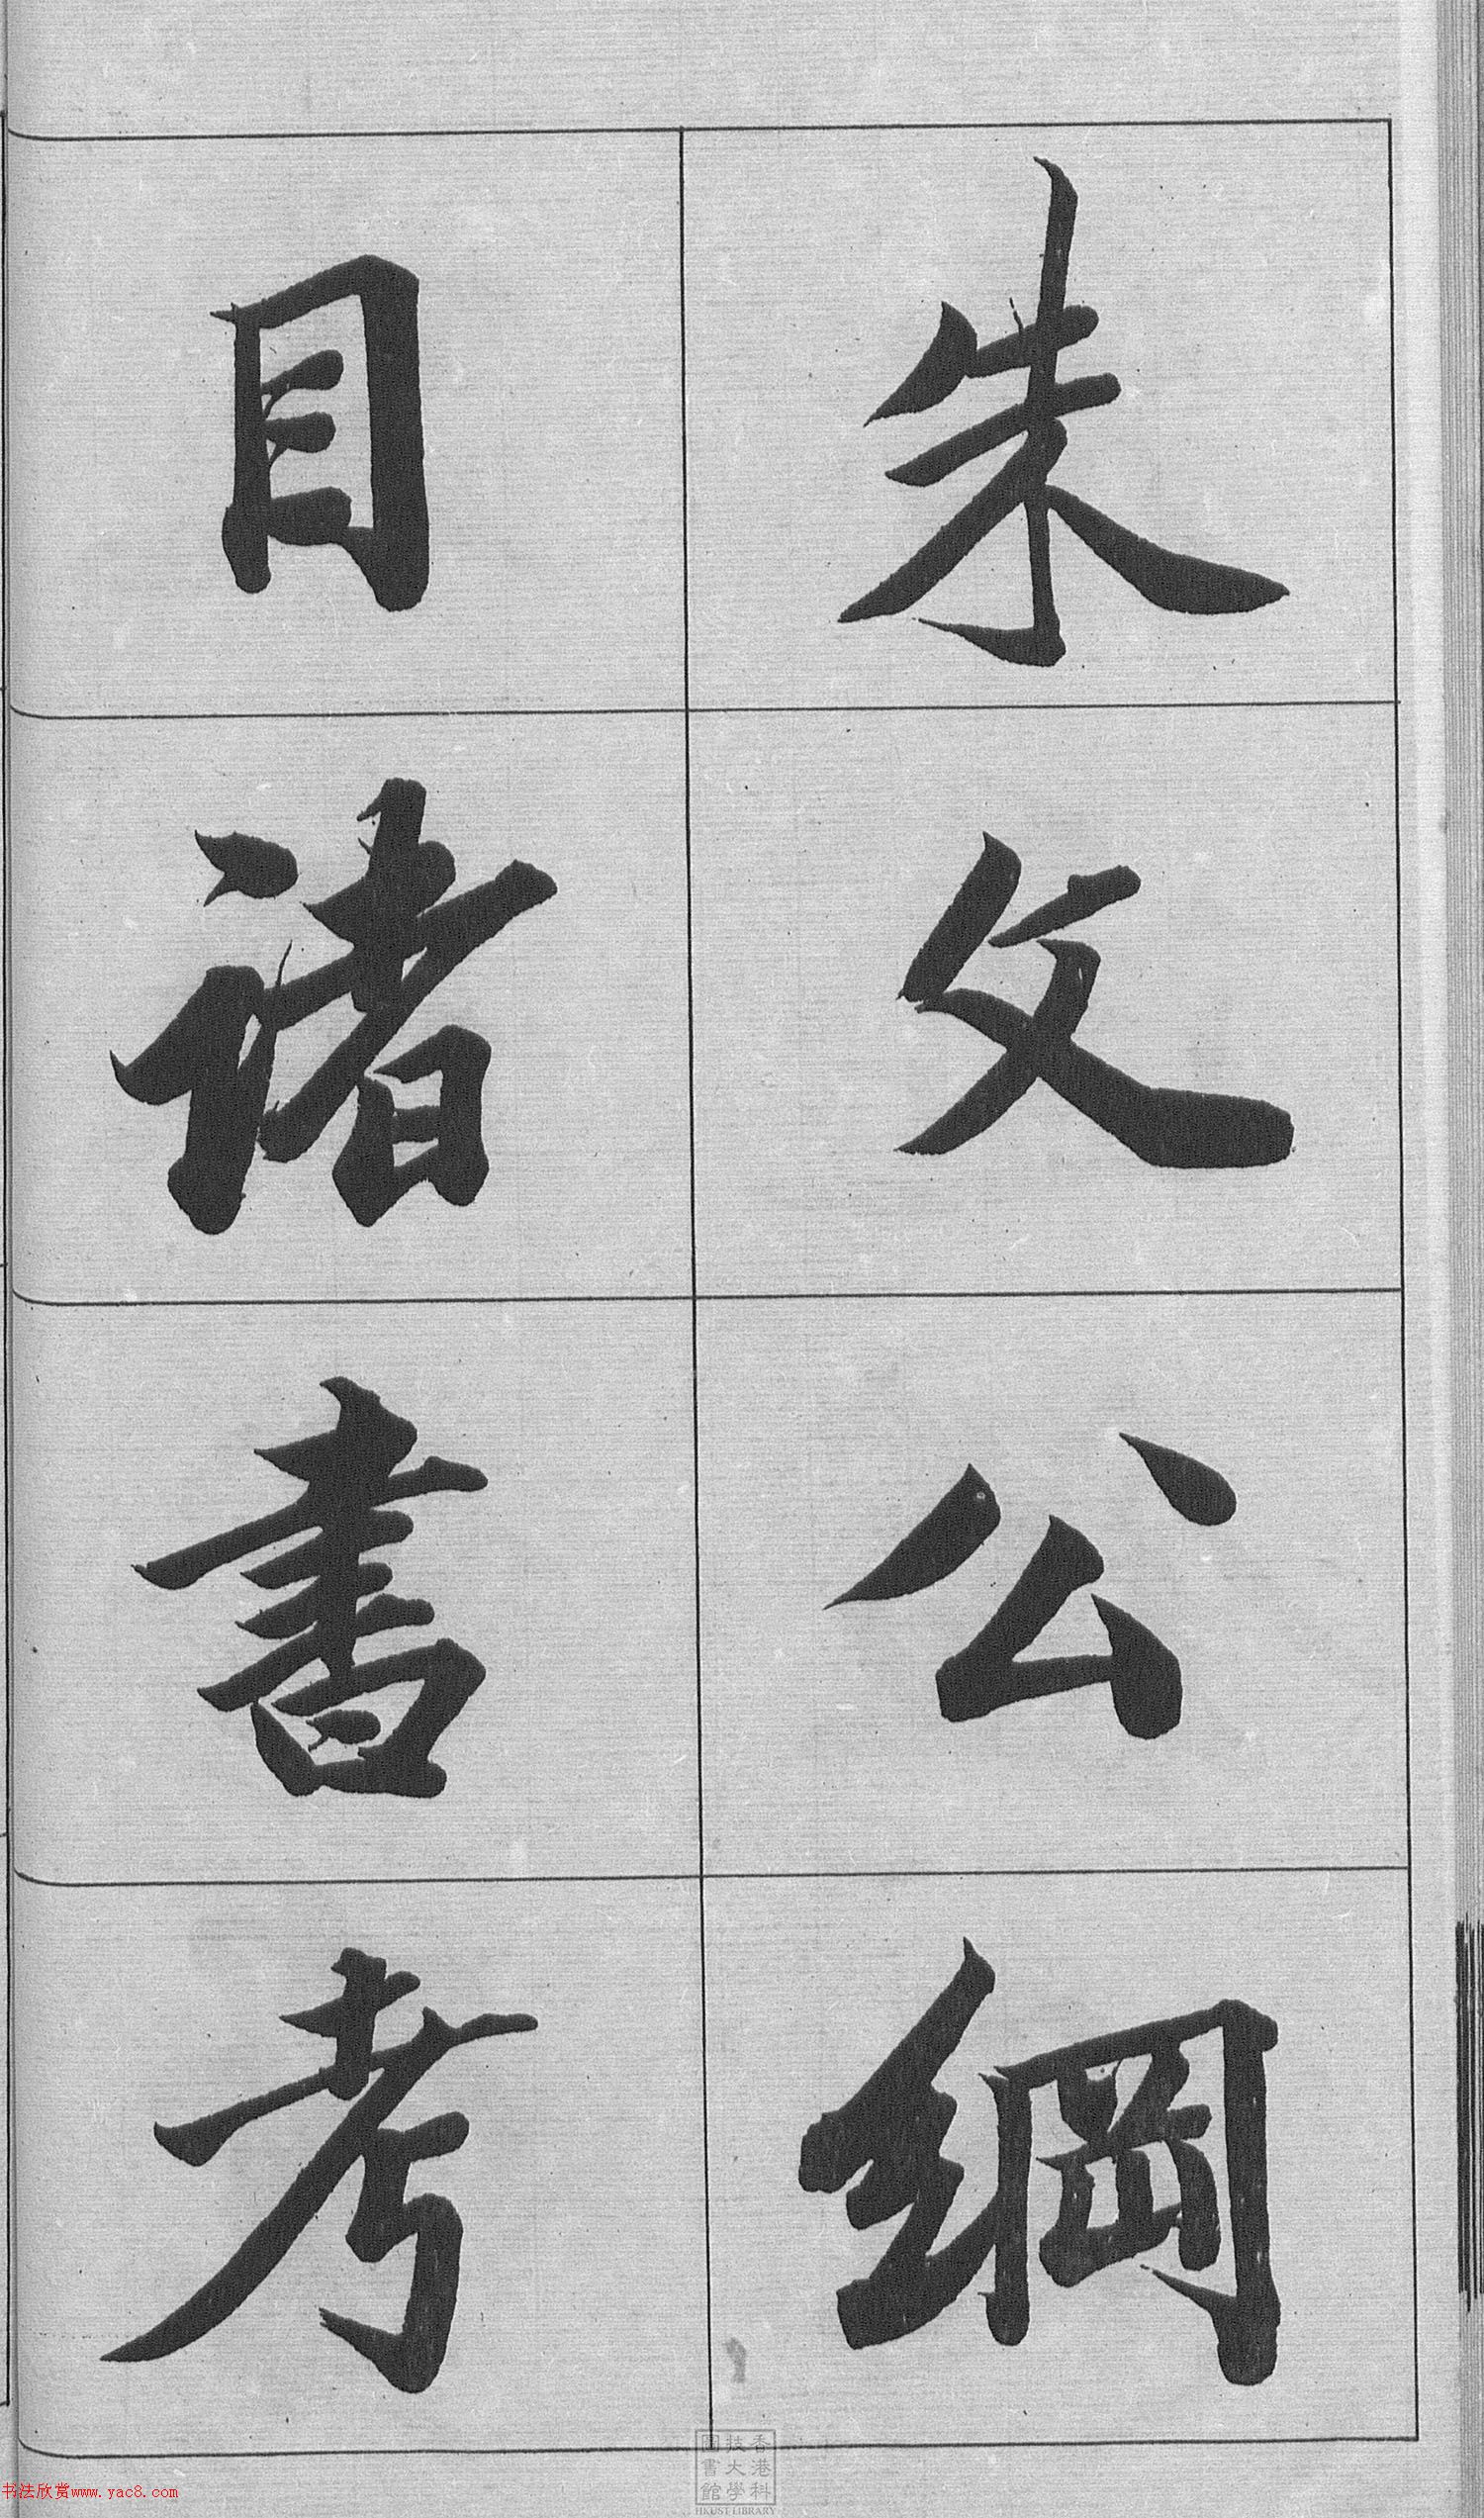 朱文公綱
目諸書考
香港科
技大學
圖書館
HKUST LIBRARY
书法欣赏www.yac8.com